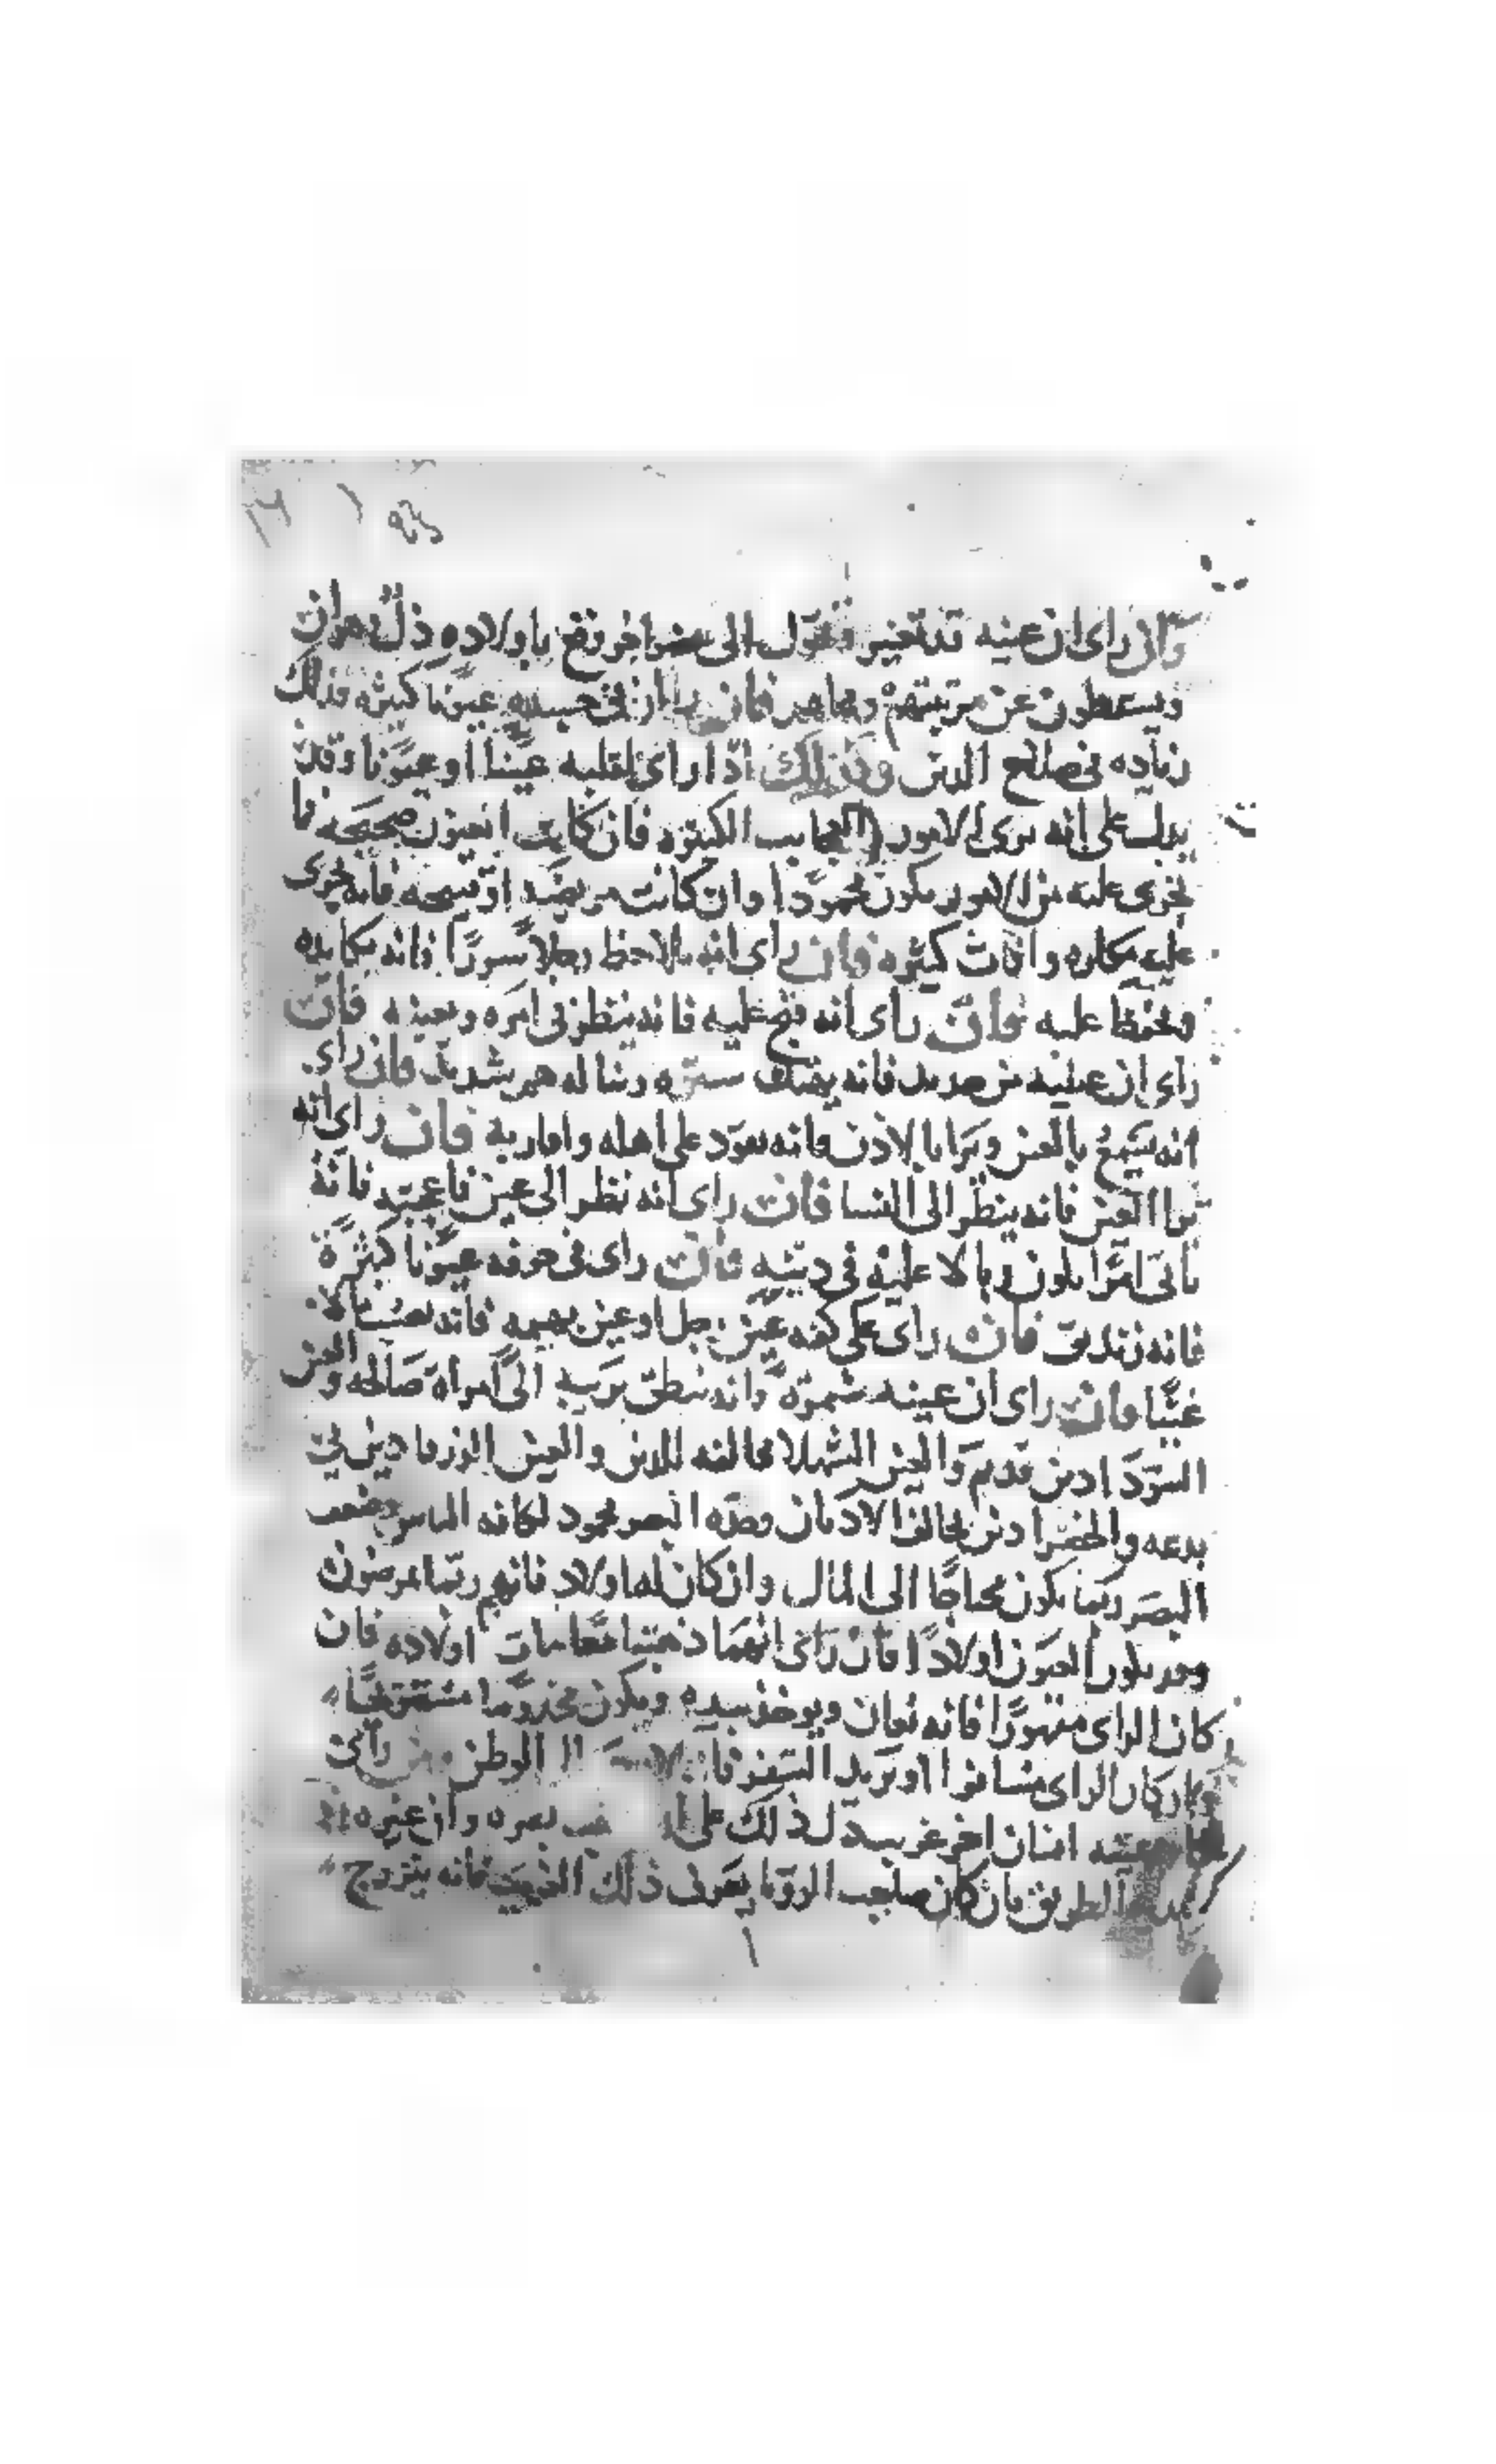 وان راى ان عينيه قد تغير وتحول الى عضو اخر وقع باولاده ذل وهوان
ويسقطون عن مرتبتهم وجاههم فان راى ان فى جسده عيونا كثيره فذلك
زياده فى صلاح الدين وكذلك اذا راى لقلبه عينا او عيونا وقد
يدل على انه يرى الامور العجايب الكثيره فان كانت العيون صحيحه فما
يجرى عليه من الامور يكون محمودا وان كانت مريضه او قبيحه فانه يجرى
عليه مكاره وافات كثيره فان راى انه يلاحظ رجلا سورا فانه يكايده
ويحفظ عليه فان راى انه فتح عليه فانه ينظر فى امره ويعينه فان
راى ان عينيه من حديد فانه يهتك ستره ويناله هم شديد فان راى
انه يسمع بالعين ويرا بالاذن فانه يقود على اهله واقاربه فان راى انه
يرا العين فانه ينظر الى النسا فان راى انه نظر الى عين فاعجبته فانه
ياتى امرا يكون وبالا عليه فى دينه فان راى فى جوفه عيونا كثيرة
فانه زنديق فان راى على كفه عين رجل او عين بهيمه فانه يصيب مالا
عينا فان راى ان عينه شمرة فانه ينطق بريبه الى امراة صالحه والعين
السودا دين قديم والعين الشهلا مخالفه للدين والعين الزرقا دين فى
بدعه والخضرا دين يخالف الاديان وحدة البصر محمود لكافه الناس وضعف
البصر ربما يكون محتاجا الى المال وان كان لها اولاد فانهم ربما يمرضون
وقد يكون العيون اولادا فان راى انهما ذهبتا معا مات اولاده فان
كان الراى منهورا فانه يعان ويوخذ بيده ويكون مخدوما مستوقفا
وان كان الراى مسافرا او يريد السفر فانه لا الى الوطن ومن راى
كان عينيه انسان اخر غريب دل ذلك على بصره وان غيره
يده الطريق فان كان صاحب الرويا يعرف ذلك الغريب فانه يتزوج